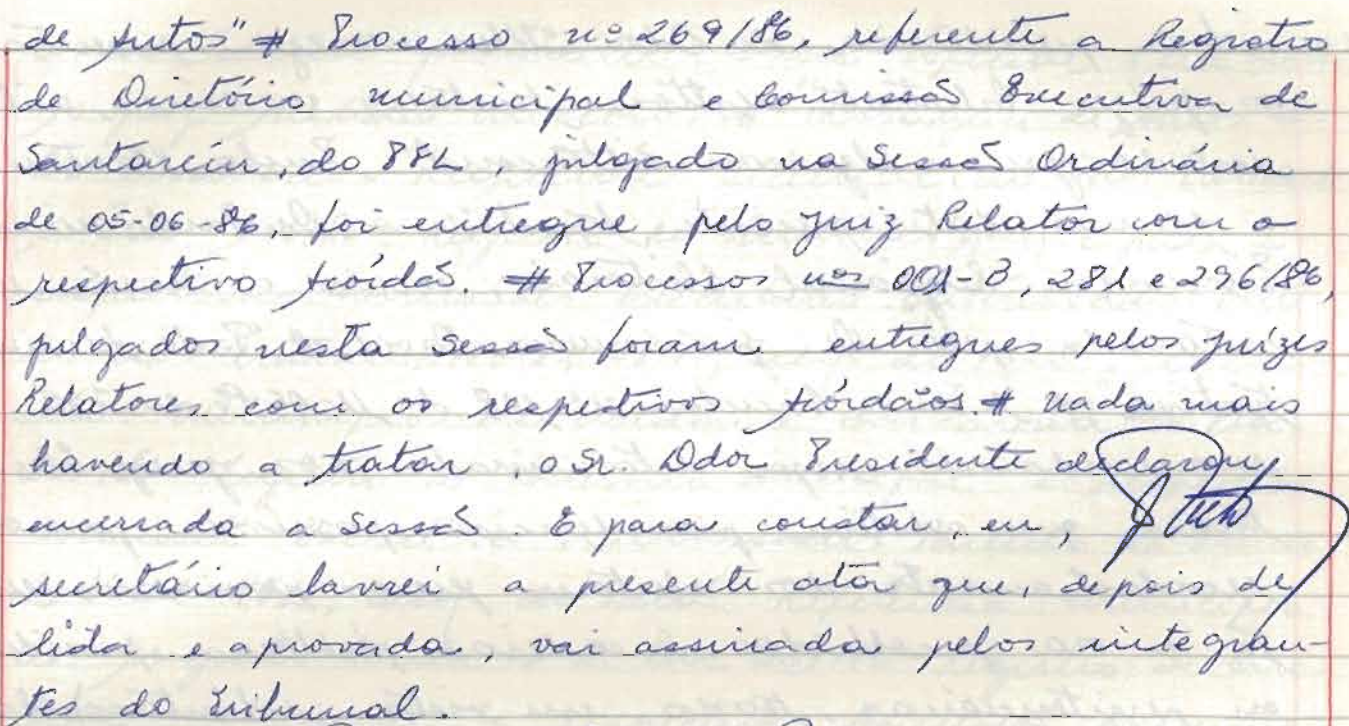 de Autos" # Processo nº 269/86, referente a Registro
de Diretório municipal e Comissão Executiva de
Santarém, do PFL, julgado na Sessão Ordinária
de 05-06-86, foi entregue pelo Juiz Relator com o
respectivo Acórdão. # Processos nºs 001-B, 281 e 296/86,
julgados nesta Sessão foram entregues pelos juízes
Relatores com os respectivos Acórdãos. # Nada mais
havendo a tratar, o Sr. Ddor Presidente declarou
encerrada a Sessão. E para constar, eu,
secretário lavrei a presente ata que, depois de
lida e aprovada, vai assinada pelos integran-
tes do Tribunal.